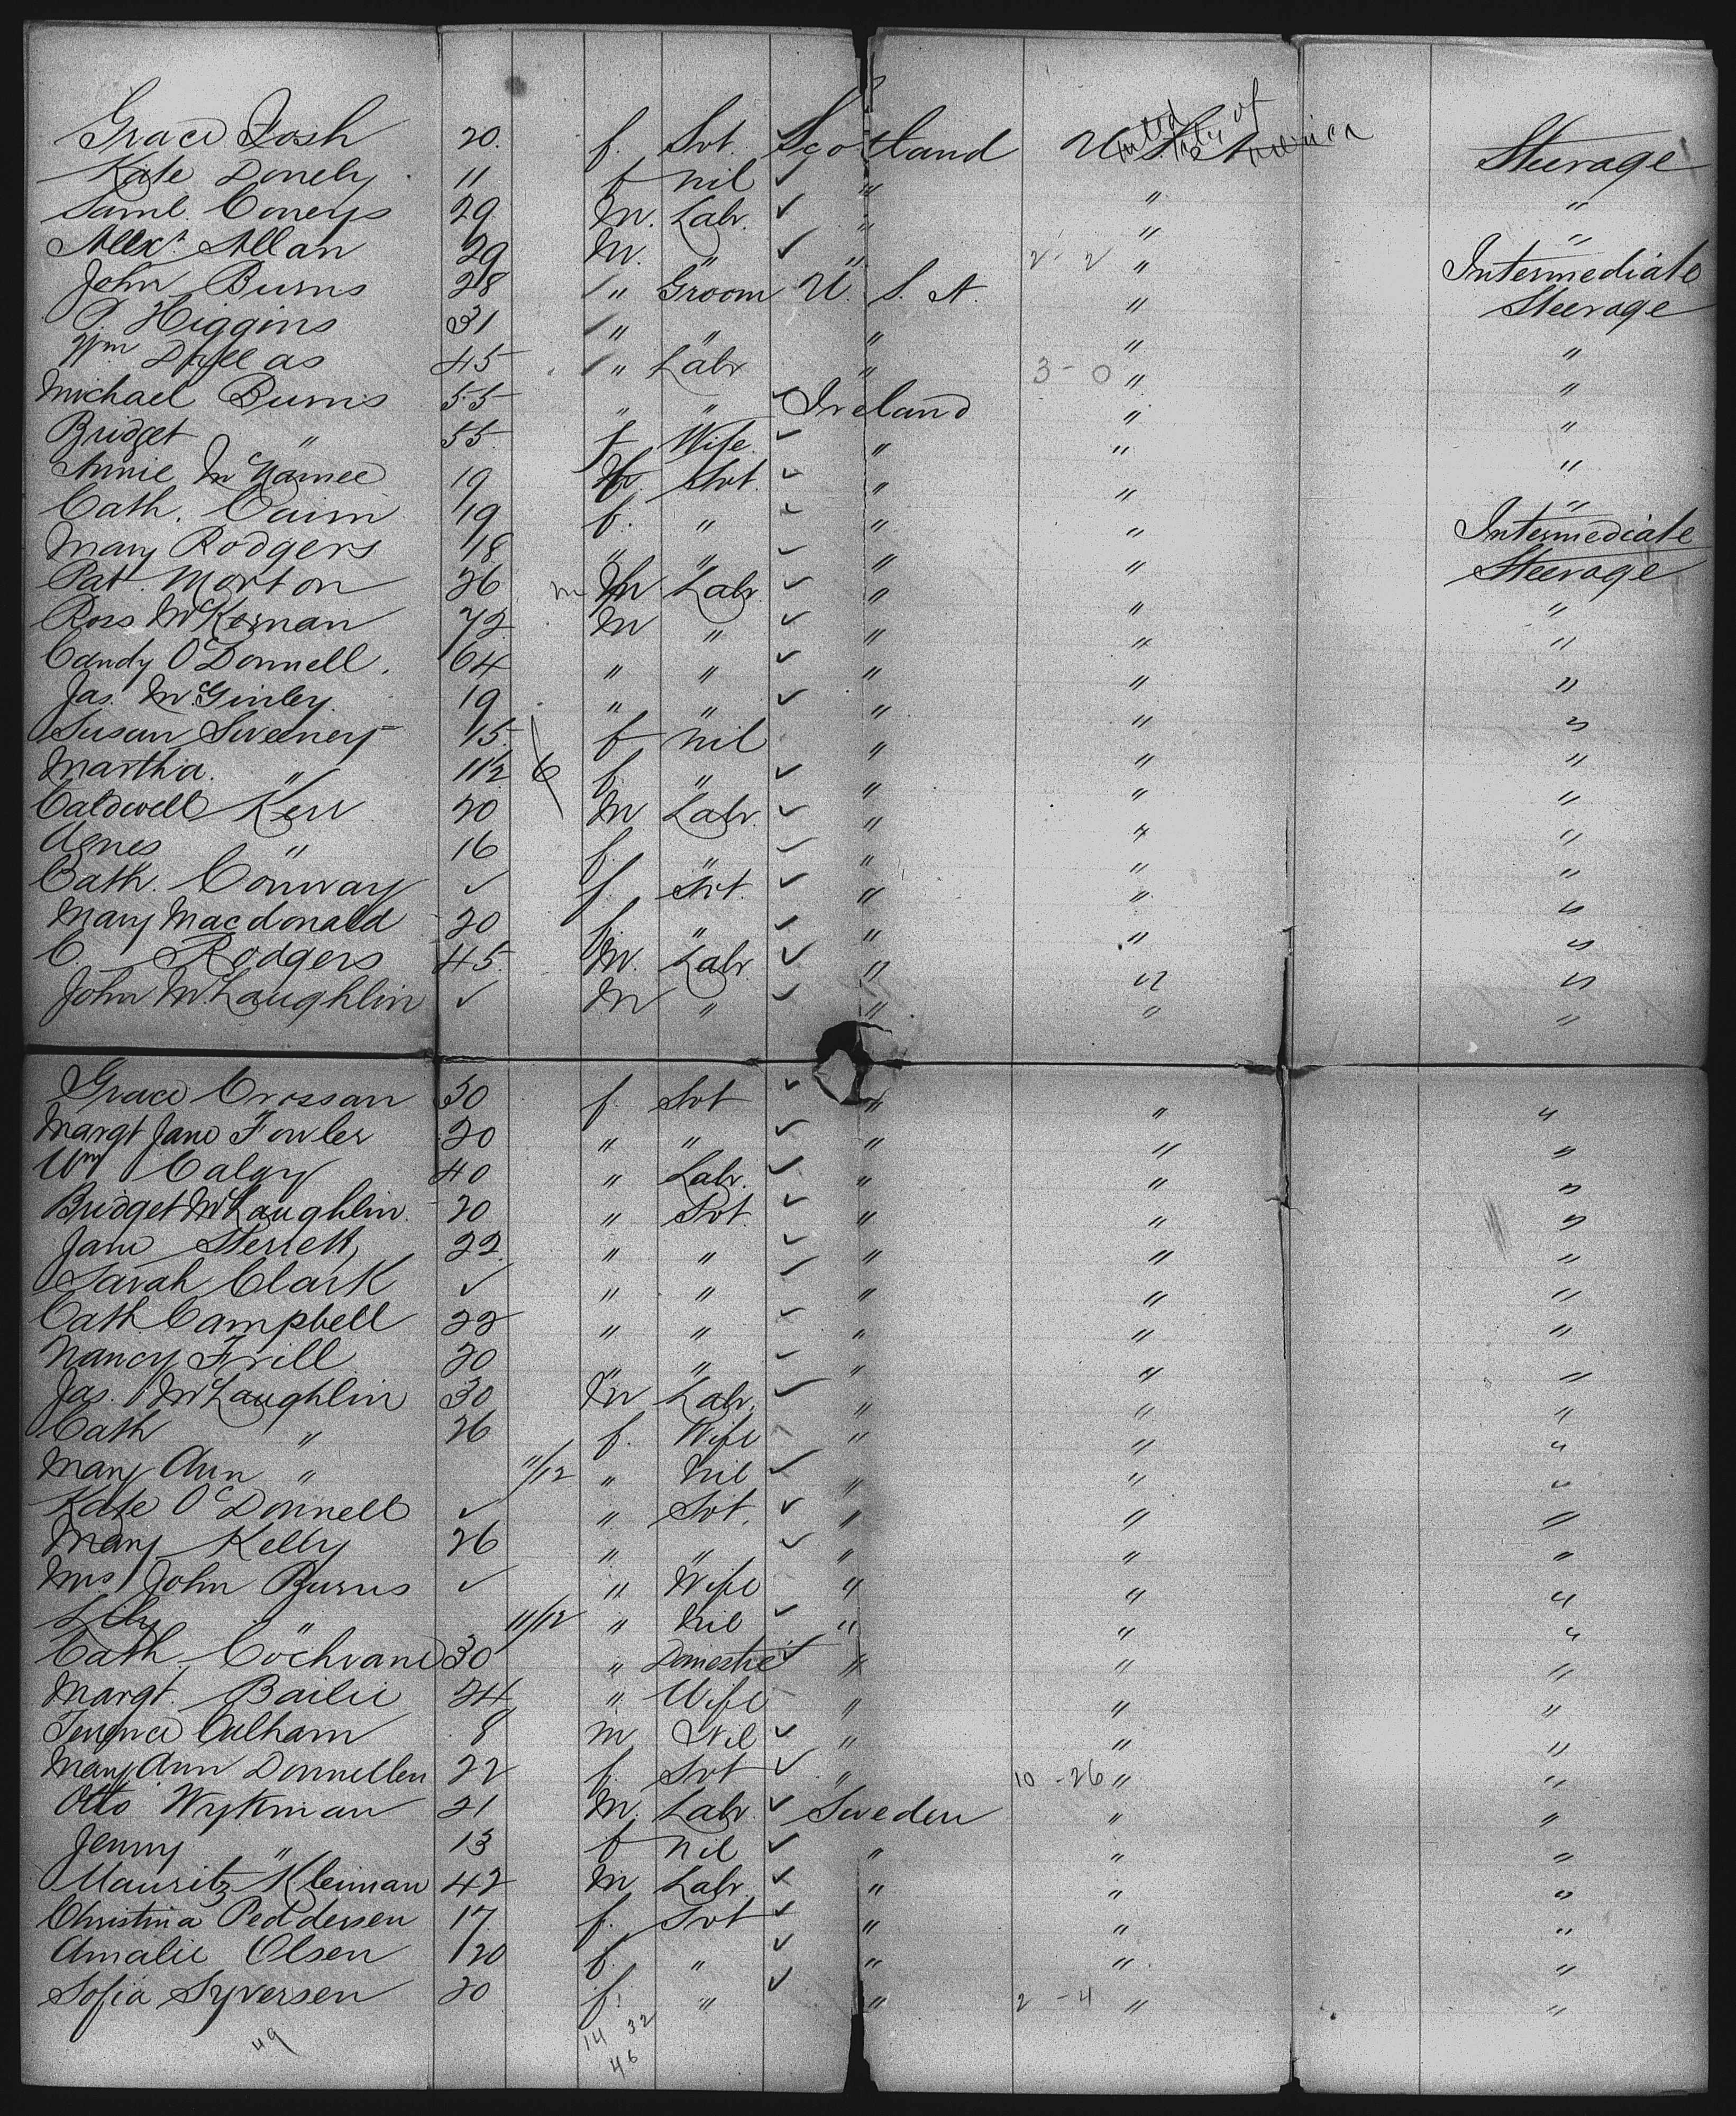 Grace Tosh 20. f. Svt. Scotland United States of America Steerage
Kate Donely 11 f nil ✓ " " "
Saml. Conerys 29 M. Labr. ✓ " " "
Alexr. Allan 29 M. " ✓ " 2-2 " Intermediate
John Burns 28 " Groom U. S. A. " Steerage
P. Higgins 31 " " " " "
Wm Dallas 45 " Labr " 3-0 " "
Michael Burns 55 " " ✓ Ireland " "
Bridget " 55. f Wife ✓ " " "
Annie McNamee 19 f. Svt. ✓ " " "
Cath. Cairn 19 f. " ✓ " " Intermediate
Mary Rodgers 18 " " ✓ " " Steerage
Pat. Morton 26 m M Labr. ✓ " " "
Ross McKernan 72 M " ✓ " " "
Condy O'Donnell. 64 " " ✓ " " "
Jas. McGinley. 19 " " ✓ " " "
Susan Sweeney 15. f nil " " "
Martha. " 11 1/2 6 f. " ✓ " " "
Caldwell Kerr 20 M Labr. ✓ " " "
Agnes " 16 f. " ✓ " " "
Cath. Conway ✓ f. Svt. ✓ " " "
Mary Macdonald 20 f. " ✓ " " "
C. Rodgers 45. M. Labr ✓ " " "
John McLaughlin ✓ M " ✓ " " "
Grace Crossan 30 f. Svt ✓ " " "
Margt Jane Fowler 20 " " ✓ " " "
Wm 40 " Labr. ✓ " " "
Bridget McLaughlin. 20 " Svt. ✓ " " "
Jane Sterrett 22. " " ✓ " " "
Sarah Clark ✓ " " ✓ " " "
Cath Campbell 22 " " ✓ " " "
Nancy Frill 20 " " ✓ " " "
Jas. McLaughlin 30 M Labr. ✓ " " "
Cath " 26 f. Wife " " "
Mary Ann " 11/12 " Nil ✓ " " "
Kate O'Donnell ✓ " Svt. ✓ " " "
Mary Kelly 26 " " ✓ " " "
Mrs John Burns ✓ " Wife " " "
Lily " 11/12 " Nil ✓ " " "
Cath. Cochrane 30 " Domestic ✓ " " "
Margt. Bailie 24 " Wife " " "
Terence Culham 8 m Nil ✓ " " "
Mary Ann Donnellen 22 f. Svt ✓ " 10-26 " "
Otto Wykman 21 M. Labr ✓ Sweden " "
Jenny " 13 f nil ✓ " " "
Mauritz Kleiman 42 M Labr ✓ " " "
Christina Peddersen 17 f. Svt ✓ " " "
Amalie Olsen 20 f. " ✓ " " "
Sofia Syversen 20 f. " ✓ " 2-4 " "
49 14 32
46